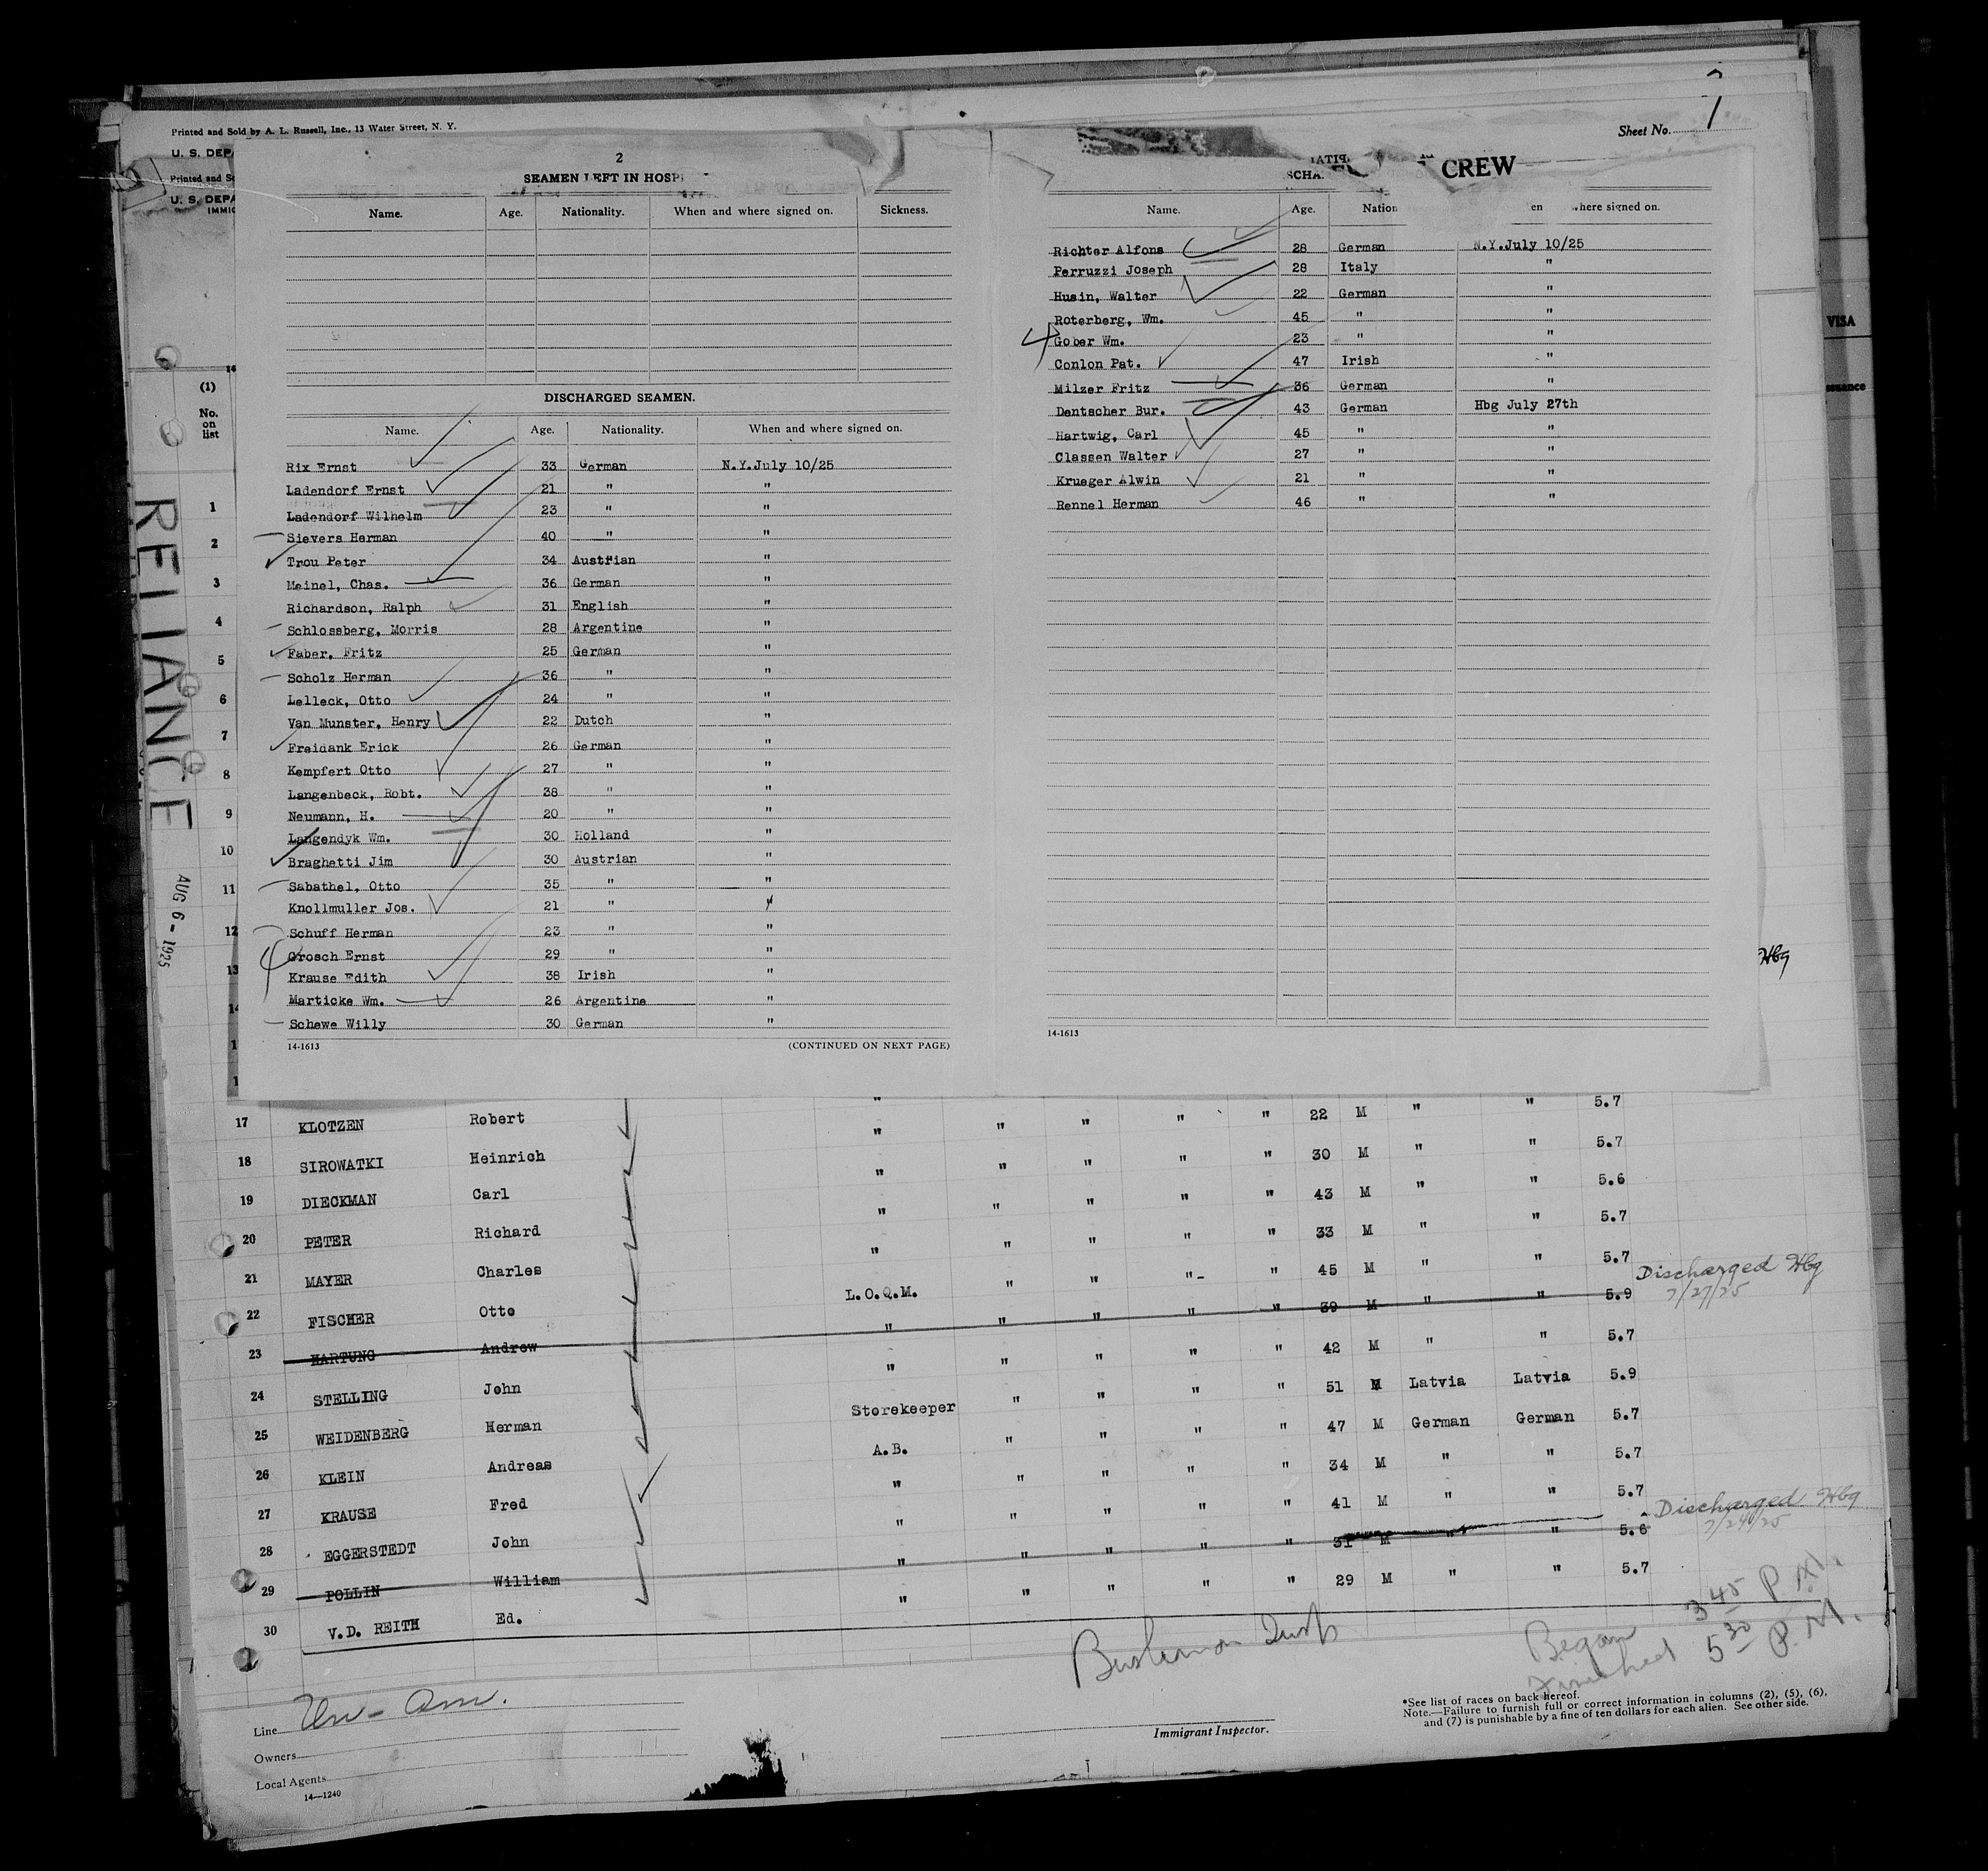 Printed and Sold by A. L. Russell, Inc., 13 Water Street, N. Y.
U. S. DEPA
Printed and S
U. S. DEPA
IMMIC
14
(1)
No. on list
1
2
3
4
5
6
7
8
9
10
11
12
13
14
1
1
RELIANCE
AUG 6 - 1925
2
SEAMEN LEFT IN HOSPI
Name. Age. Nationality. When and where signed on. Sickness.
DISCHARGED SEAMEN.
Name. Age. Nationality. When and where signed on.
Rix Ernst 33 German N.Y.July 10/25
Ladendorf Ernst 21 " "
Ladendorf Wilhelm 23 " "
Sievers Herman 40 " "
Trou Peter 34 Austrian "
Meinel, Chas. 36 German "
Richardson, Ralph 31 English "
Schlossberg, Morris 28 Argentine "
Faber, Fritz 25 German "
Scholz Herman 36 " "
Lelleck, Otto 24 " "
Van Munster, Henry 22 Dutch "
Freidank Erick 26 German "
Kempfert Otto 27 " "
Langenbeck, Robt. 38 " "
Neumann, H. 20 " "
Langendyk Wm. 30 Holland "
Braghetti Jim 30 Austrian "
Sabathel, Otto 35 " "
Knollmuller Jos. 21 " "
Schuff Herman 23 " "
Grosch Ernst 29 " "
Krause Edith 38 Irish "
Marticke Wm. 26 Argentine "
Schewe Willy 30 German "
14-1613 (CONTINUED ON NEXT PAGE)
Sheet No. 1
SCHA
CREW
Name. Age. Nation en where signed on.
Richter Alfons 28 German N.Y.July 10/25
Perruzzi Joseph 28 Italy "
Husin, Walter 22 German "
Roterberg, Wm. 45 " "
Gober Wm. 23 " "
Conlon Pat. 47 Irish "
Milzer Fritz 36 German "
Dentscher Bur. 43 German Hbg July 27th
Hartwig, Carl 45 " "
Classen Walter 27 " "
Krueger Alwin 21 " "
Rennel Herman 46 " "
14-1613
VISA
ssuance
Hbg
17 KLOTZEN Robert " " " " " 22 M " " 5.7
18 SIROWATKI Heinrich " " " " " 30 M " " 5.7
19 DIECKMAN Carl " " " " " 43 M " " 5.6
20 PETER Richard " " " " " 33 M " " 5.7
21 MAYER Charles " " " " " 45 M " " 5.7
22 FISCHER Otto L.O.Q.M. " " " " 39 M " " 5.9 Discharged Hbg 7/27/25
23 HARTUNG Andrew " " " " " 42 M " " 5.7
24 STELLING John " " " " " 51 M Latvia Latvia 5.9
25 WEIDENBERG Herman Storekeeper " " " " 47 M German German 5.7
26 KLEIN Andreas A.B. " " " " 34 M " " 5.7
27 KRAUSE Fred " " " " " 41 M " " 5.7
28 EGGERSTEDT John " " " " " 31 M " " 5.6 Discharged Hbg 7/24/25
29 POLLIN William " " " " " 29 M " " 5.7
30 V.D. REITH Ed. "
Began 3 45 P.M.
Finished 5 30 P.M.
Line Un - Am.
Owners
Local Agents
14—1240
Immigrant Inspector.
*See list of races on back hereof.
Note.—Failure to furnish full or correct information in columns (2), (5), (6),
and (7) is punishable by a fine of ten dollars for each alien. See other side.